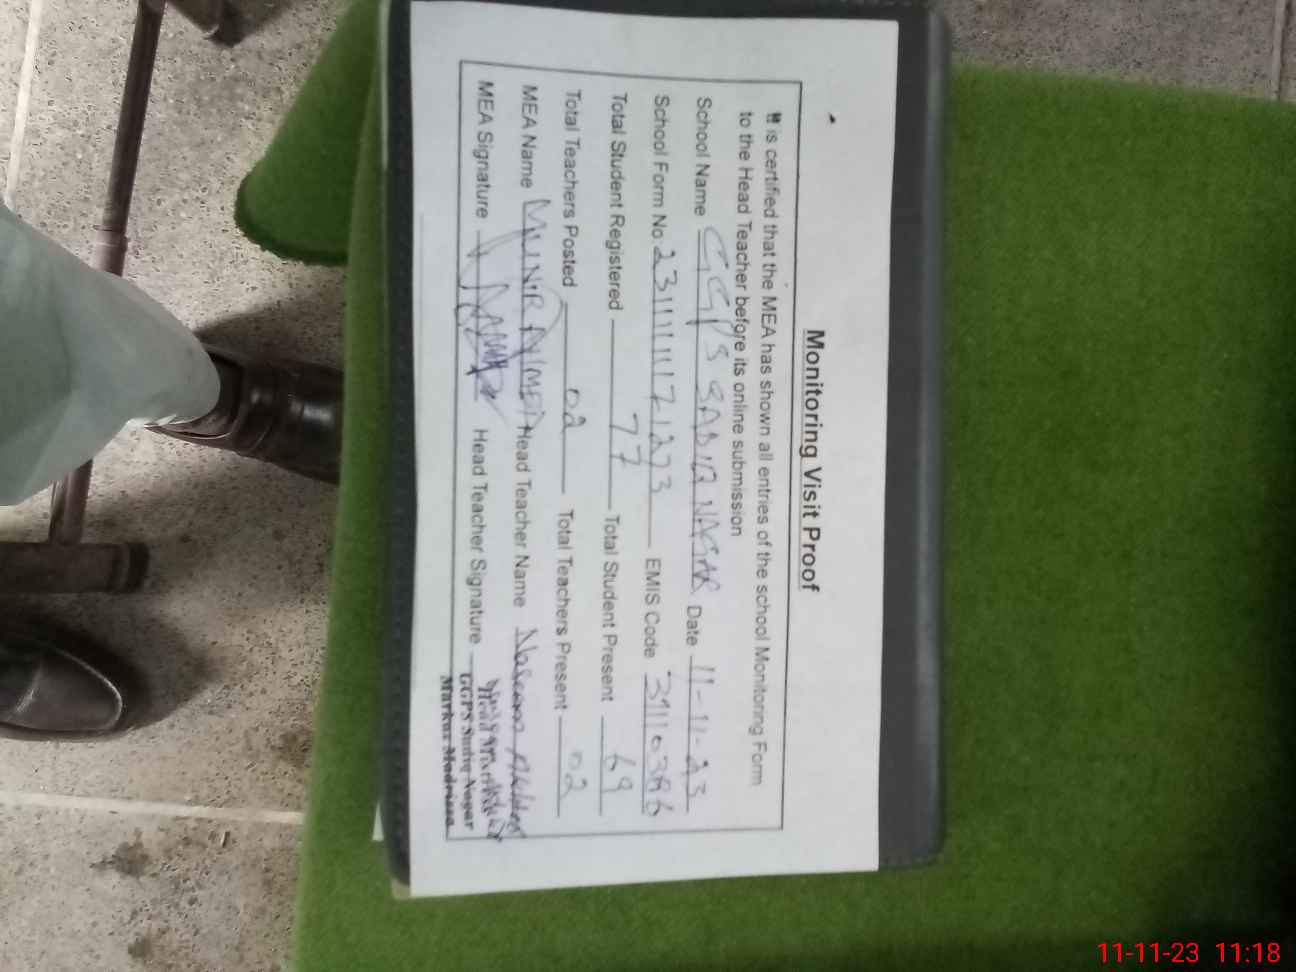 Monitoring Visit Proof
It is certified that the MEA has shown all entries of the school Monitoring Form
to the Head Teacher before its online submission
School Name GGPS SADIQ NAGAR Date 11-11-23
School Form No 2311111171273 EMIS Code
Total Student Registered 77 Total Student Present 69
Total Teachers Posted 02 Total Teachers Present 02
MEA Name MUNIR AHMED Head Teacher Name
MEA Signature Head Teacher Signature
GGPS Sadiq Nagar
Markaz Madrissa
11-11-23 11:18